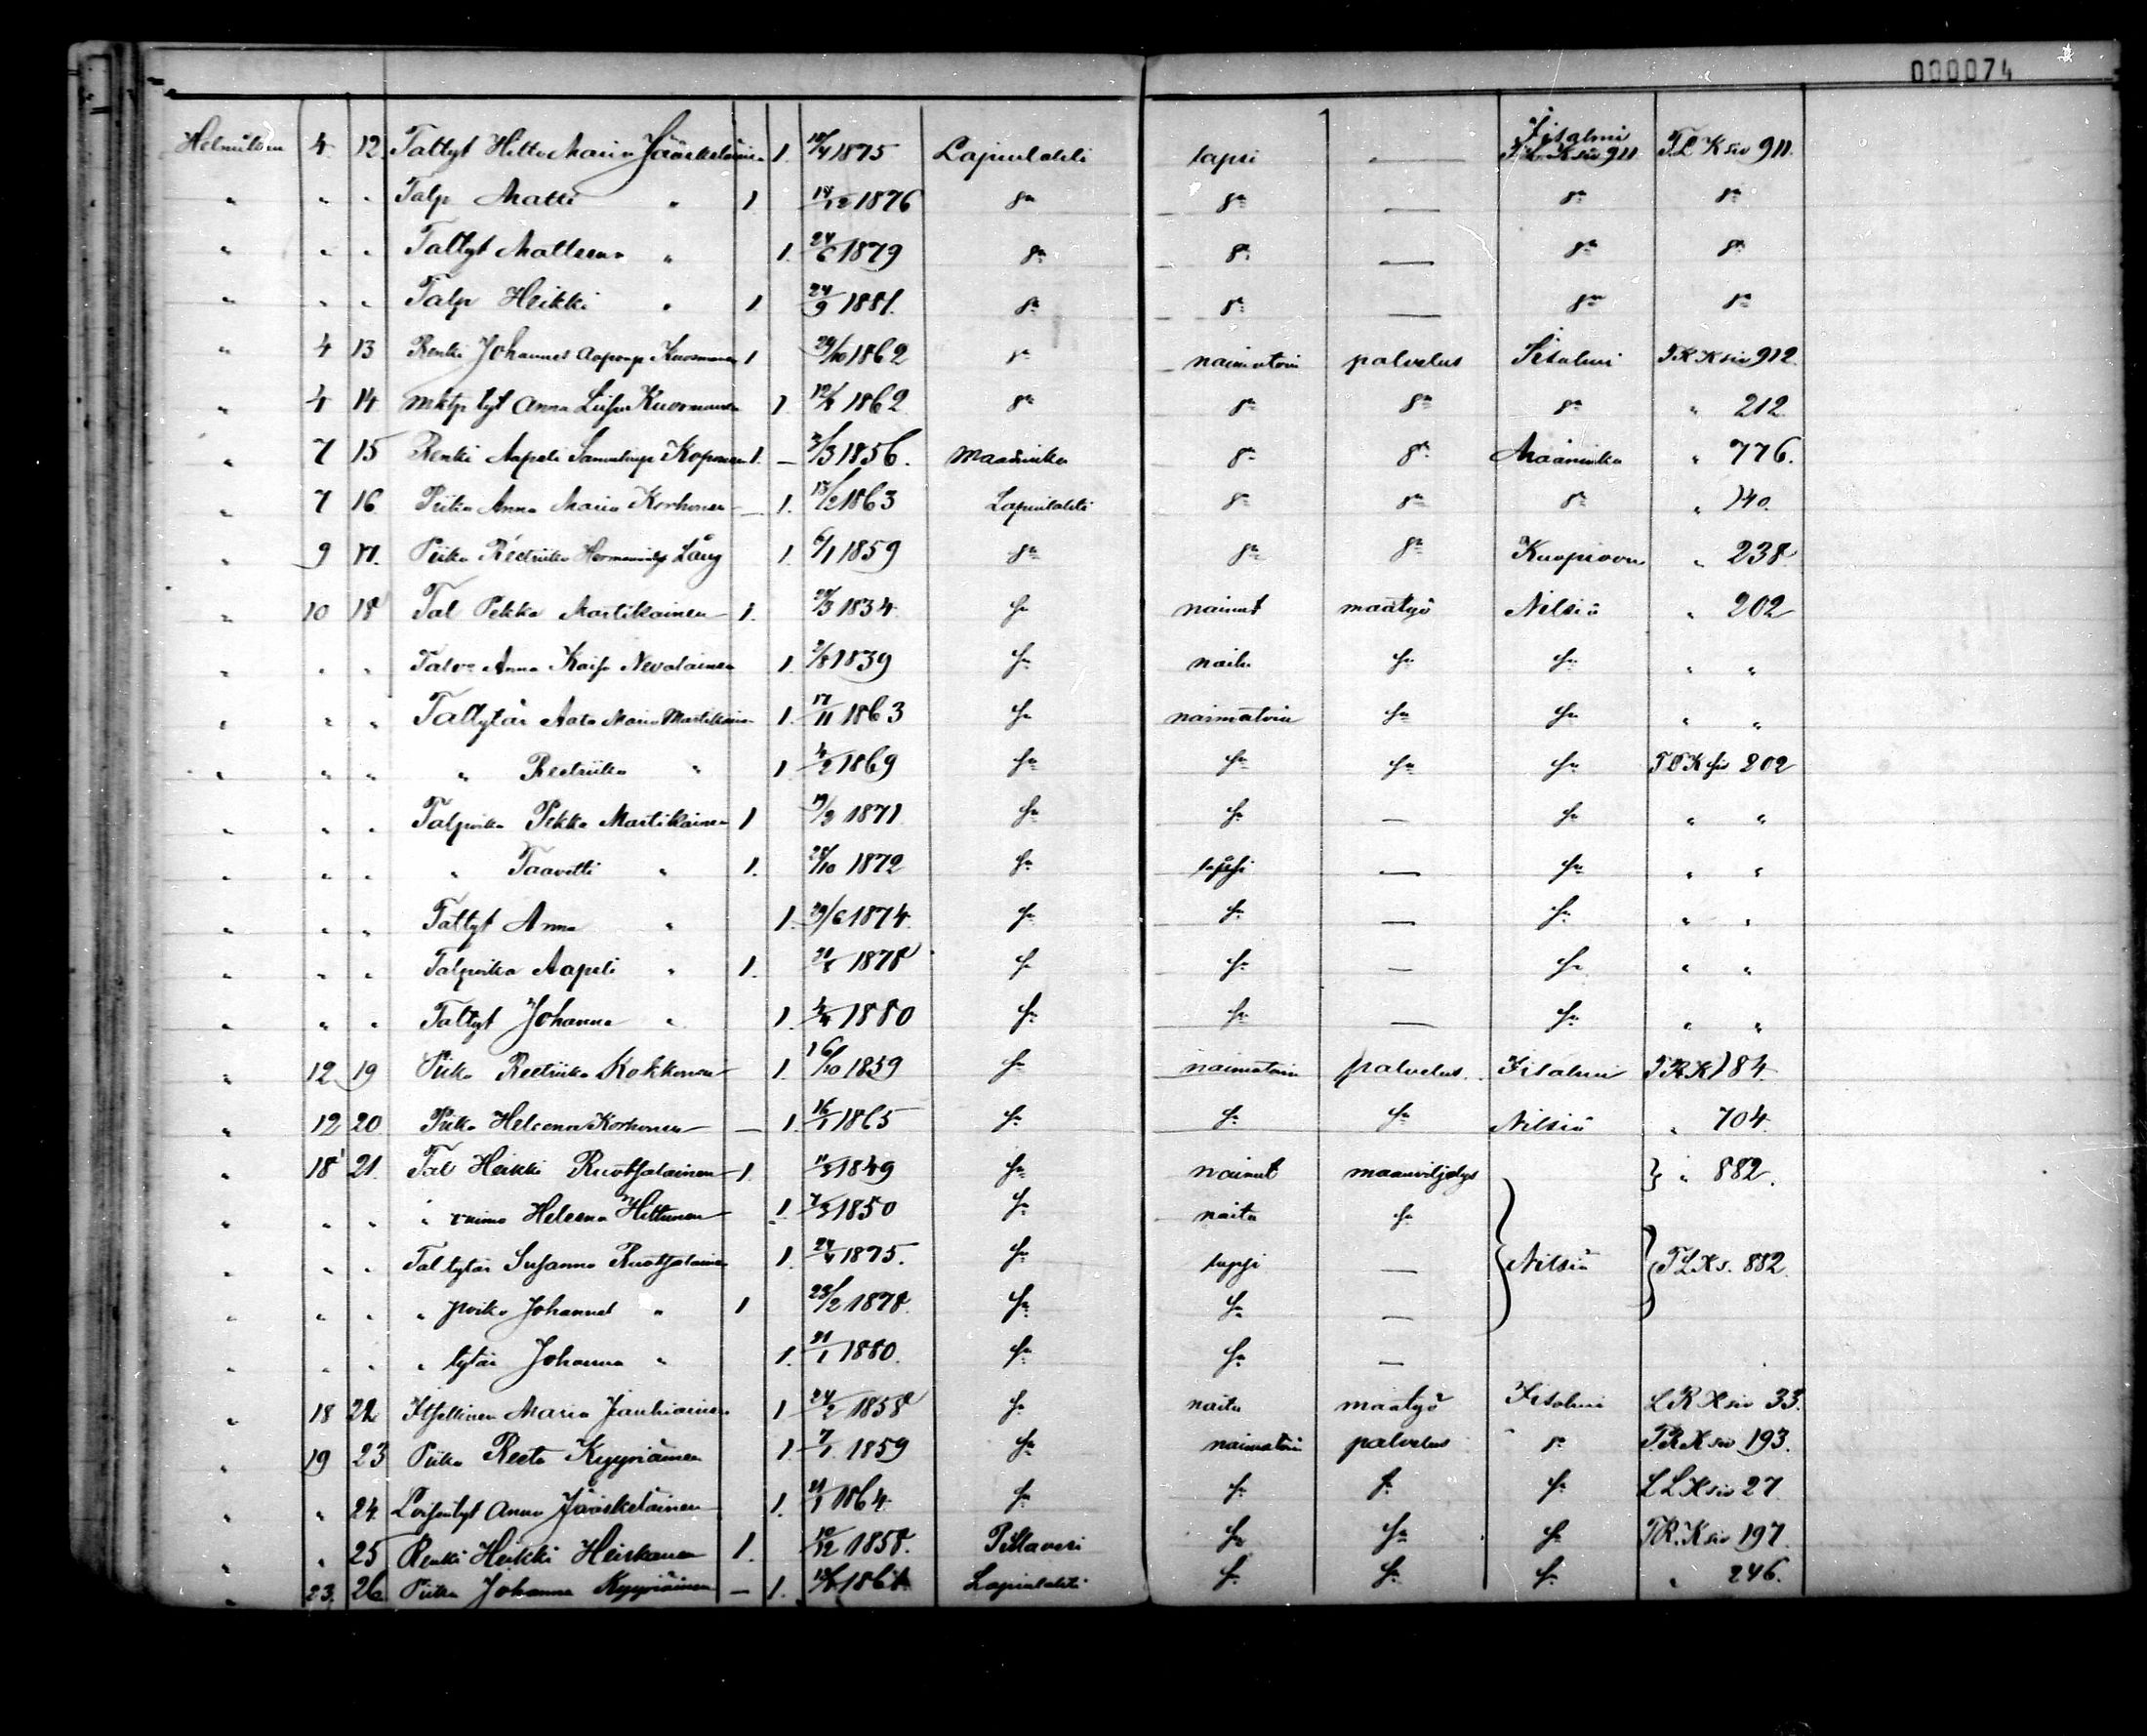 000074
Helmikun 4. 12. Taltyt Hilta Maria Jääskeläinen 1. 18/4 1875 Lapinlahti lapsi — Iisalmi T.L.Ksiv 911. T.L Ksiv 911.
" " " Talp Matti " 1 14/12 1876 sn sn — sn sn
" " " Taltyt Matleena " 1. 24/6 1879 sn sn — sn sn
" " " Talp Heikki " 1 24/9 1881. sn sn — sn sn
" 4 13 Renki Johannes Aaponp Kuosmanen 1 24/10 1862 sn naimatoin palvelus Iisalmi T.R Ksiv 912.
" 4 14 mktp tyt Anna Liisa Kuosmanen 1 1862 sn sn sn sn " 212
" 7 15 Renki Aapeli Samulinp Koponen 1. — 3/3 1856. Maaninka sn sn Maaninka " 776.
" 7 16 Piika Anna Maria Korhonen — 1. 18/2 1863 Lapinlahti sn sn sn " 140.
" 9 17. Piika Reetriika Hermannint Lång 1. 6/1 1859 sn sn sn Kuopioon " 238
" 10 18 Tal Pekka Martikainen 1. 1834 sn nainut maatyö Nilsiä " 202
" " " Talvo Anna Kaisa Nevalainen 1. 2/8 1839 sn naitu sn sn " "
" " " Taltytär Aata Maria Martikain 1. 17/11 1863 sn naimatoin sn sn " "
" " " " Reetriika " 1 4/2 1869 sn sn sn sn 202
" " " Talpoika Pekka Martikainen 1 19/3 1871 sn sn — sn " "
" " " " Taavetti " 1. 28/10 1872 sn lapsi — sn " "
" " " Taltyt Anna " 1. 29/6 1874. sn sn — sn " "
" " " Talpoika Aapeli " 1. 1878 sn sn — sn " "
" " " Taltyt Johanna " 1. 1880 sn sn — sn " "
" 12 19 Piika Reetriika Kokkonen 1. 16/10 1859 sn naimatoin palvelus. Iisalmi T.R K 184.
" 12 20 Piika Heleena Korhonen — 1. 16/1 1865 sn sn sn Nilsiä " 704.
" 18 21. Tal Heikki Ruotsalainen 1. 1849 sn nainut maanviljelys " 882.
" " " " vaimo Heleena Hittunen 1. 1850 sn naitu sn
" " " Tal tytär Susanna Ruotsalainen 1. 1875. sn lapsi — Nilsiä T L K s. 882.
" " " " poika Johannes " 1 28/2 1878. sn sn —
" " " " tytär Johanna " 1. 21/1 1880. sn sn —
" 18 22 Itsellinen Maria Jauhiainen 1 24/2 1858 sn naitu maatyö Iisalmi L R Ksiv 33.
" 19 23 Piika Reeta Kyyriäinen 1. 7/1 1859 sn naimatoin palvelus sn T.R.Ksiv 193.
" " 24. Loisentyt Anna Jääskeläinen 1. 1864 sn sn sn sn L L Ksiv 27.
" " 25 Renki Heikki Heiskanen 1. 10/12 1858. Pielavesi sn sn sn T.R.Ksiv 197.
" 23. 26 Piika Johanna Kyyriäinen — 1. Lapinlahti sn sn sn " 246.